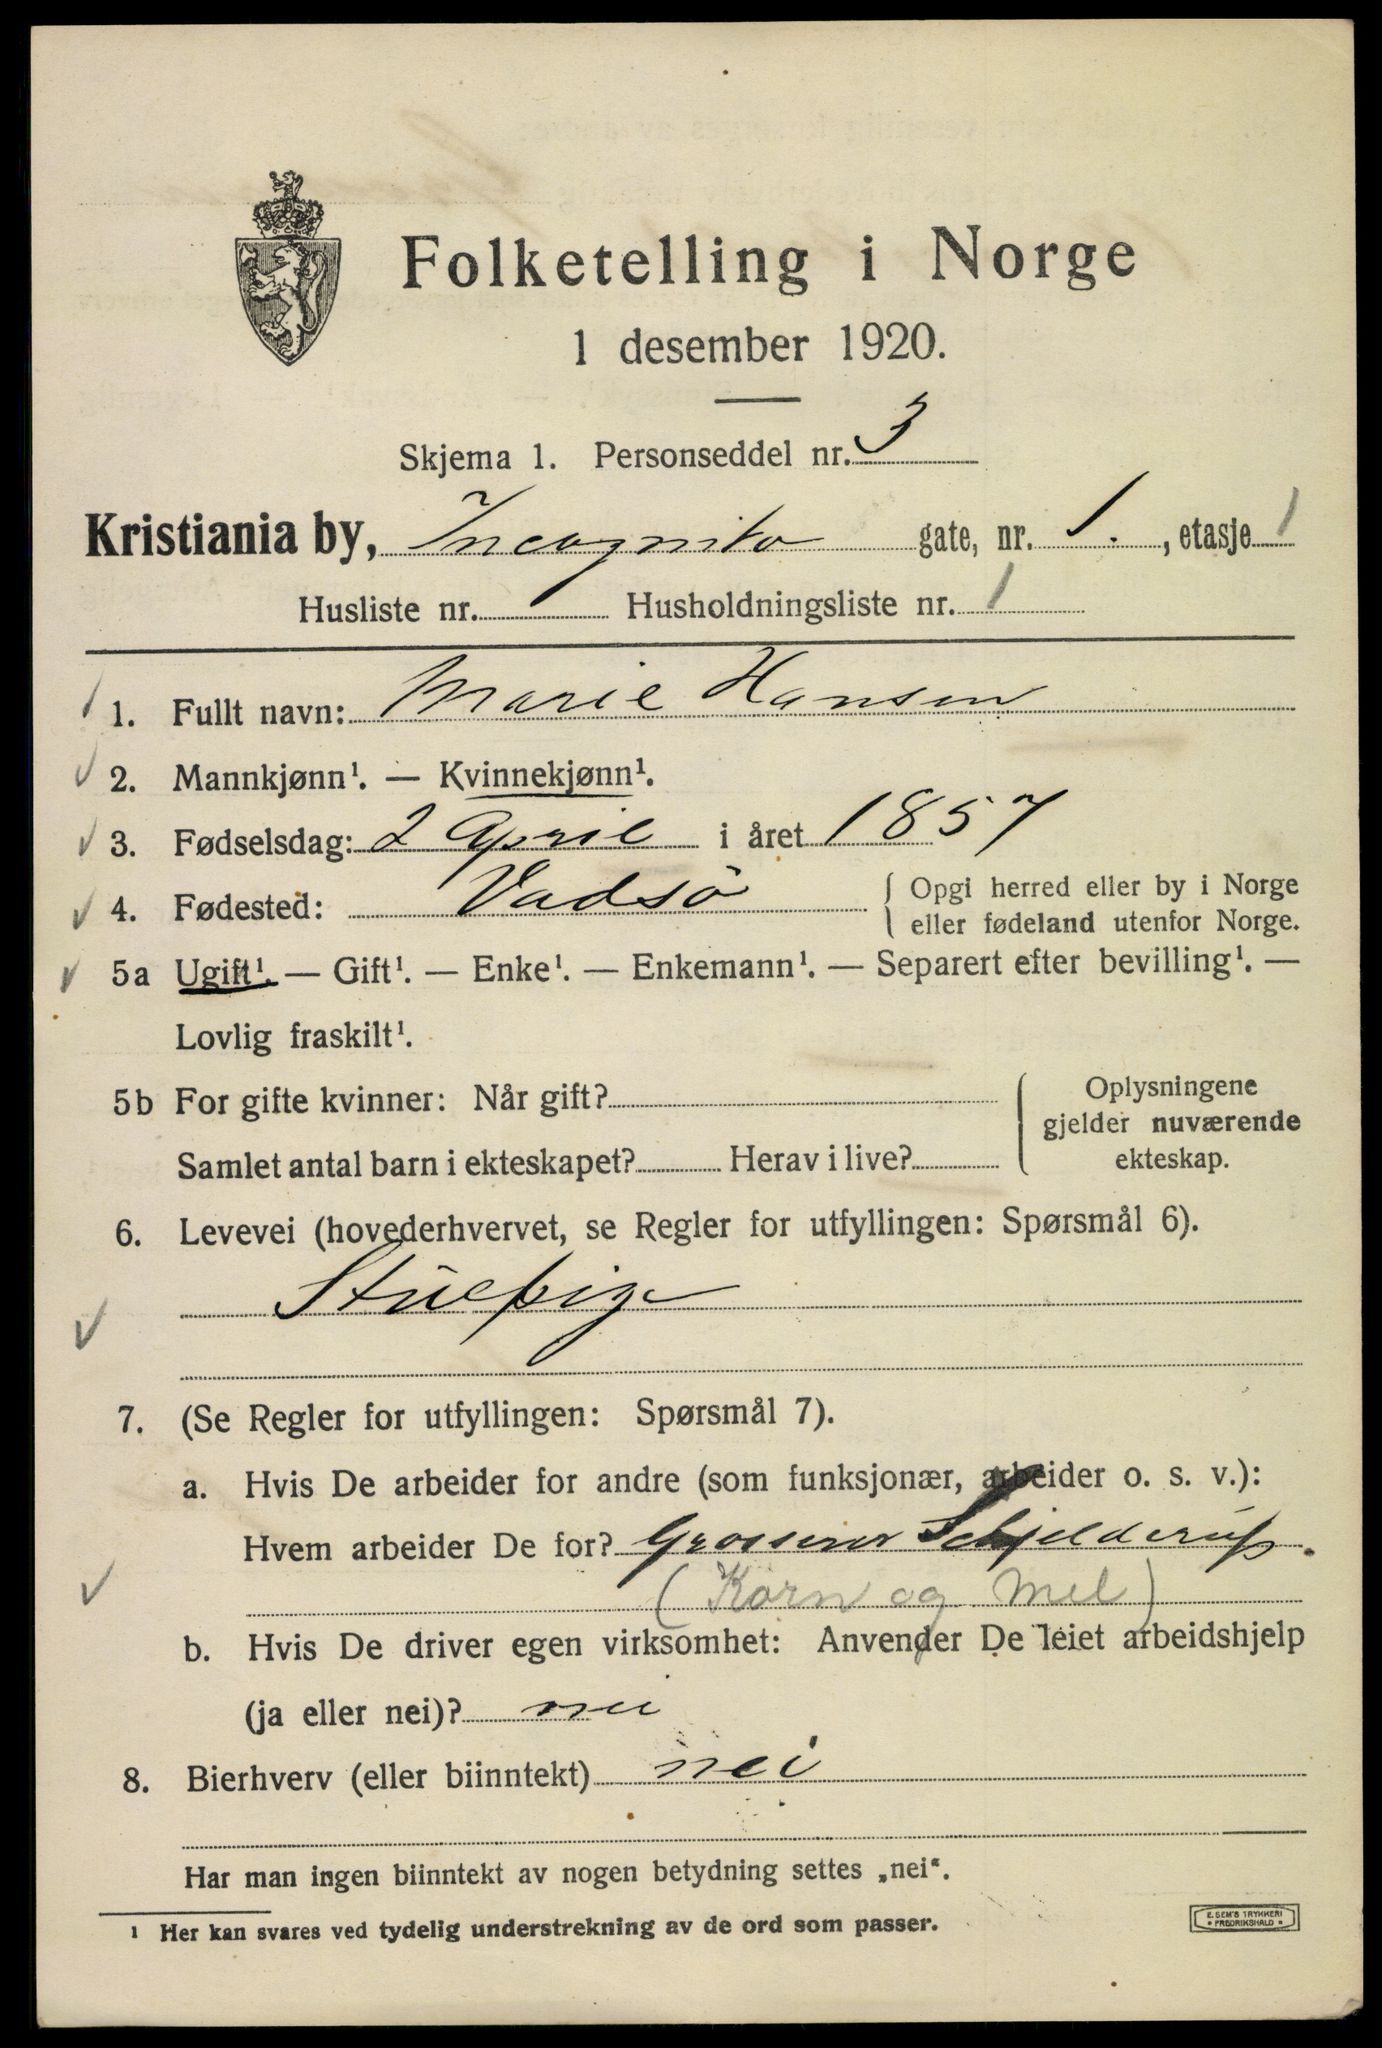 Folketelling i Norge
1 desember 1920.
Skjema 1. Personseddel nr. 3
Kristiania by, Incognito gate, nr. 1. , etasje 1
Husliste nr. Husholdningsliste nr. 1
1. Fullt navn: Marie Hansen
2. Mannkjønn¹. — Kvinnekjønn¹.
3. Fødselsdag: 2 April i året 1857
4. Fødested: Vadsö { Opgi herred eller by i Norge
eller fødeland utenfor Norge.
5a Ugift¹. — Gift¹. — Enke¹. — Enkemann¹. — Separert efter bevilling¹. —
Lovlig fraskilt¹.
5b For gifte kvinner: Når gift?
Samlet antal barn i ekteskapet? Herav i live?
Oplysningene
gjelder nuværende
ekteskap.
6. Levevei (hovederhvervet, se Regler for utfyllingen: Spørsmål 6).
Stuepige
7. (Se Regler for utfyllingen: Spørsmål 7).
a. Hvis De arbeider for andre (som funksjonær, arbeider o. s. v.):
Hvem arbeider De for? Grosserer Schjelderup.
(Korn og Mel)
b. Hvis De driver egen virksomhet: Anvender De leiet arbeidshjelp
(ja eller nei)? nei
8. Bierhverv (eller biinntekt) nei
Har man ingen biinntekt av nogen betydning settes „nei“.
¹ Her kan svares ved tydelig understrekning av de ord som passer.
E. SEM'S TRYKKERI
FREDRIKSHALD